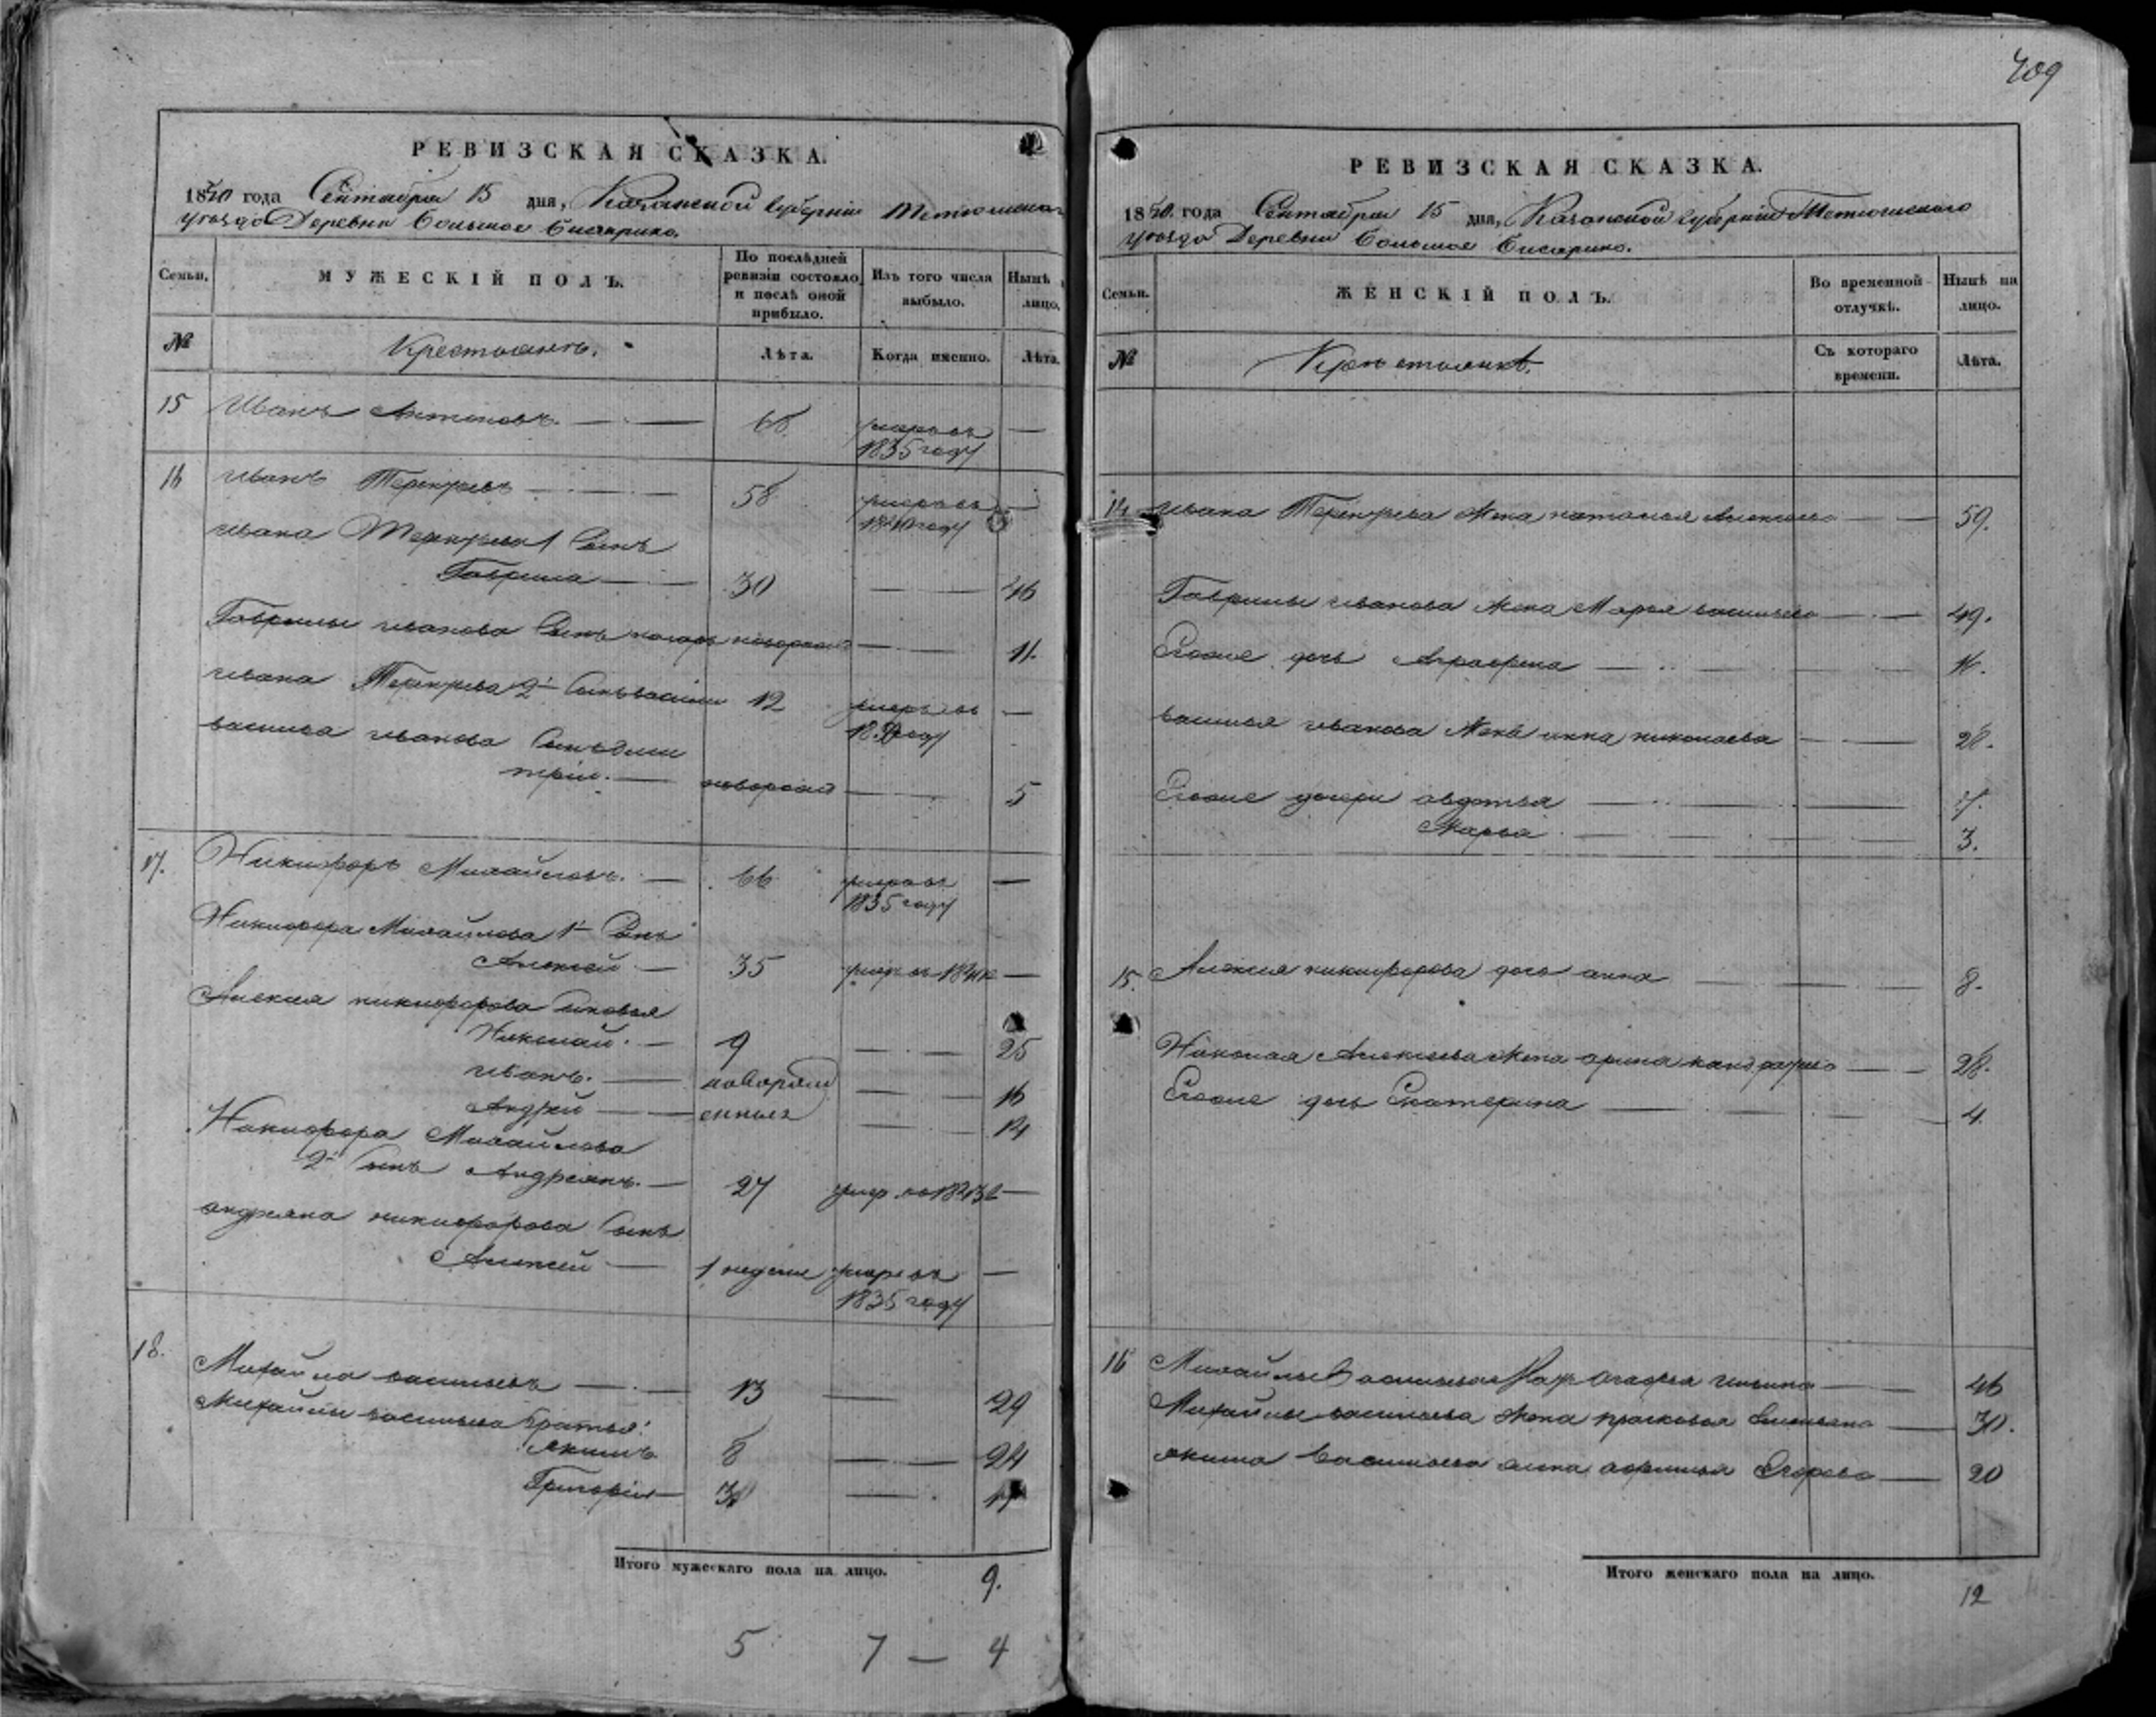 409
РЕВИЗСКАЯ СКАЗКА.
1850 года Сентября 15 дня, Казанской губернии Тетюшскаго
уезда Деревни Большое
Семьи. МУЖЕСКІЙ ПОЛЪ. По послѣдней ревизіи состояло и послѣ оной прибыло. Изъ того числа выбыло. Нынѣ лицо.
№ Крестьянъ. Лѣта. Когда именно. Лѣта.
15 Иванъ Антоновъ. — 68 умеръ въ —
1835 году
16 иванъ Терентьевъ — 58 умеръ въ —
году
ивана Терентьева 1 Сынъ
Гаврила — 30 — 46
Гаврилы иванова Сынъ — 11.
ивана Терентьева 2й Сынъ василий 12 умеръ въ —
году
василья иванова Сынъ дми
трій. — новорож — 5
17. Никифоръ Михайловъ. — 66 умеръ въ —
1835 году
Никифора Михайлова 1й Сынъ
Алексей — 35 умеръ въ —
Алексея никифорова сыновья
Николай. — 9 — 25
иванъ. — новорожд — 16
Андрей — енныя — 14
Никифора Михайлова
2й Сынъ Андреянъ. — 27 —
андреяна никифорова Сынъ
Алексей — 1 недели умеръ въ —
1835 году
18. Михайла васильевъ — 13 — 29
Михайлы васильева братья:
Якимъ 8 — 24
Григорій —
Итого мужескаго пола на лицо. 9.
5 7 — 4
РЕВИЗСКАЯ СКАЗКА.
1850. года Сентября 15 дня, Казанской губернии Тетюшскаго
уезда Деревни Большое
Семьи. ЖЕНСКІЙ ПОЛЪ. Во временной отлучкѣ. Нынѣ на лицо.
№ Съ котораго времени. Лѣта.
14 ивана Терентьева Жена наталья Алексеева — 59.
Гаврилы иванова Жена Марья васильева — 49.
Ево дочь Аграфена — 16.
василья иванова Жена анна николаева — 28.
дочери авдотья — 7.
Марья — 3.
15. Алексея никифорова дочь анна — 8.
Николая Алексеева Жена арина — 28.
дочь Екатерина — 4.
16 Михайлы Васильева агафья ильина — 46
Михайлы васильева Жена прасковья — 30.
якима Васильева жена Егорова — 20
Итого женскаго пола на лицо.
12